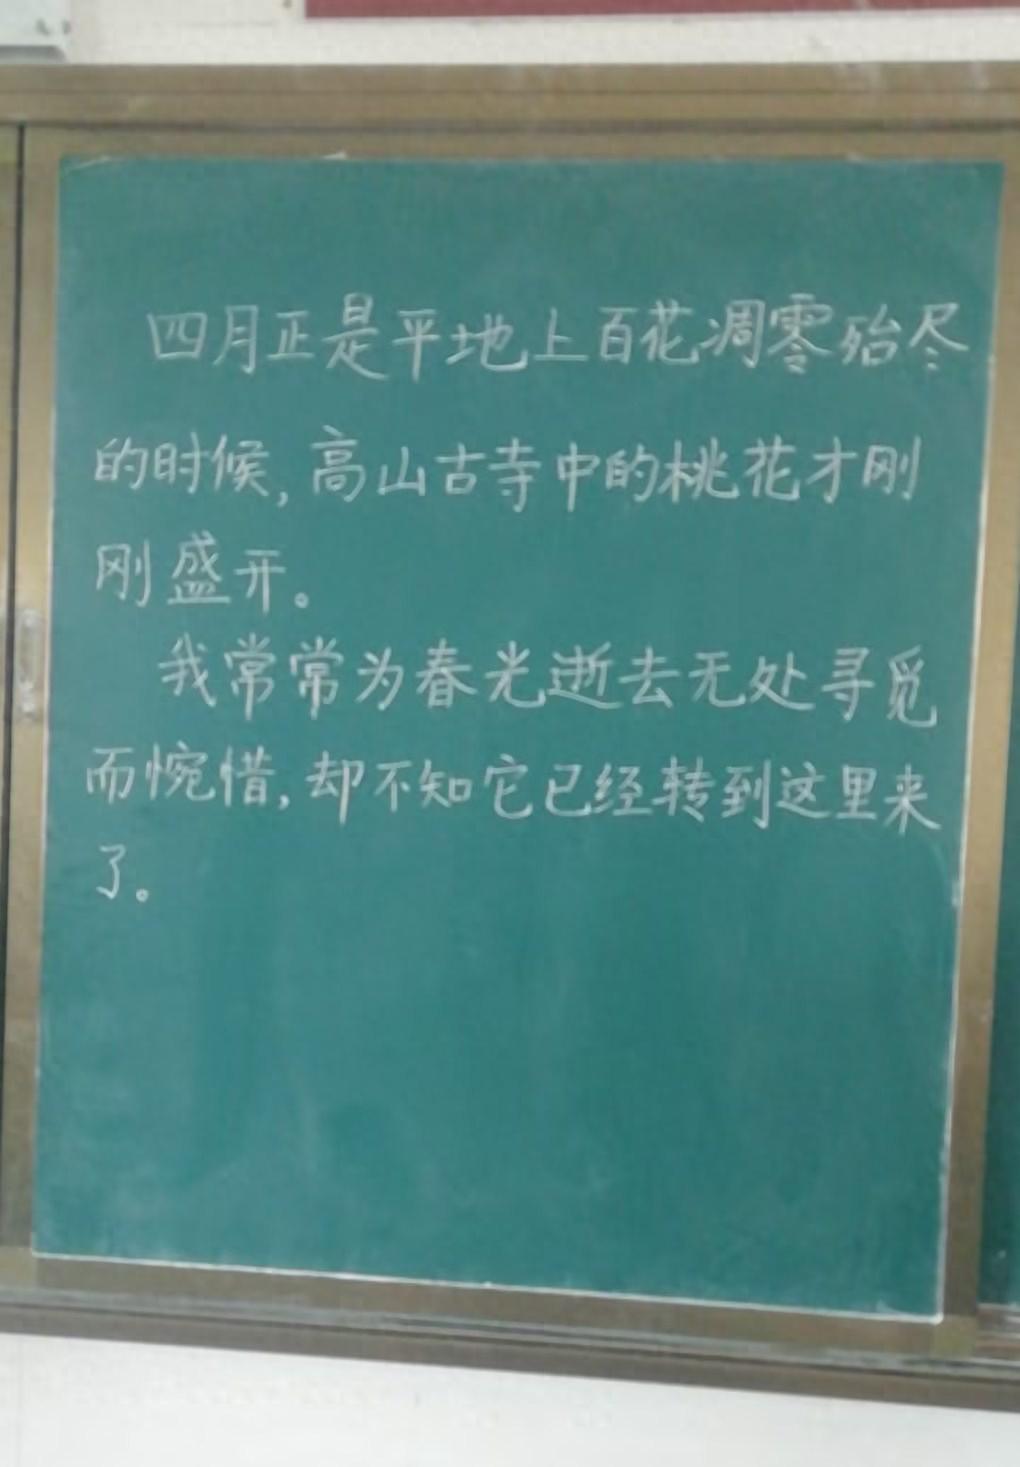 四月正是平地上百花凋零殆尽
的时候,高山古寺中的桃花才刚
刚盛开。
我常常为春光逝去无处寻觅
而惋惜,却不知它已经转到这里来
了。